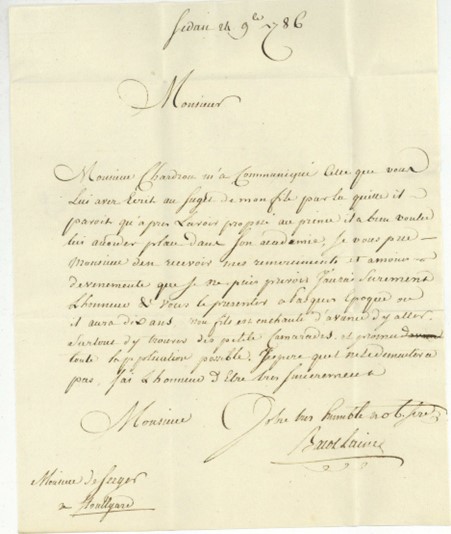 Sedan 24 9bre 1786
Monsieur
Monsieur Chardron m'a Communiqué Celle que vous
Lui avez Ecrit au sujet de mon fils par la quelle il
paroit qu'apres L'avoir proposé au prince il a bien voulu
lui accorder place dans son academie, Je vous prie
Monsieur d'en recevoir mes remerciments et
que je ne puis prevoir J'aurai Surement
L'honneur de vous le presenter a la que Epoque ou
il aura dix ans, mon fils est enchanté d'avance d'y aller.
Surtout d'y trouver des petits Camarades, et promet
toute la possible. J'espere que
pas, J'ai L'honneur d'Etre tres sincerement
Monsieur
Votre tres humble
Monsieur de Seeger
a Stouttgard